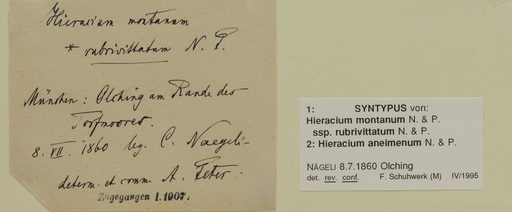 Hieracium montanum
* rubrivittatum N. P.
München: Olching am Rande des
Torfmoores.
8. VII. 1860 leg. C. Naegeli-
determ. et comm. A. Peter.
Zugegangen 1.1907.
1: SYNTYPUS von:
Hieracium montanum N. & P.
ssp. rubrivittatum N. & P.
2: Hieracium aneimenum N. & P.
NÄGELI 8.7.1860 Olching
det. rev. conf. F. Schuhwerk (M) IV/1995